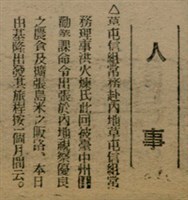 人事
△草屯信組常務赴內地草屯信組常
務理事洪火煉氏此回被臺中州
勸業課命令出張於內地視察優良
之農倉及擴張島米之販路、本日
由基隆出發其旅程按一個月間云。